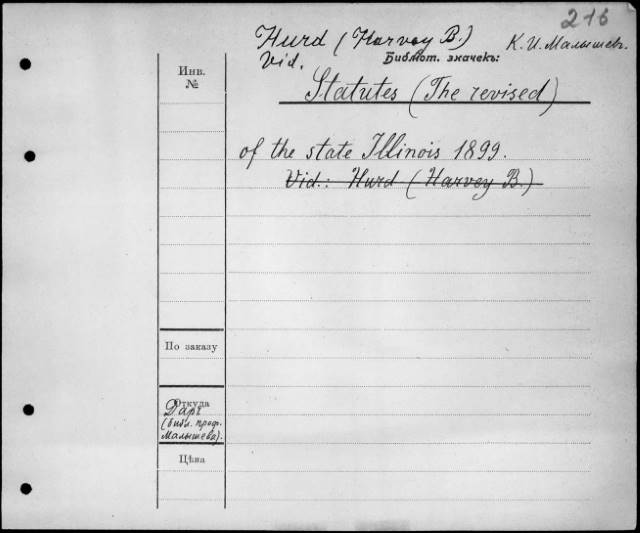 216
Hurd (Harvey B.) К. И. Малышев.
Vid. Библіот. значекъ:
Инв.
№
Statutes (The revised)
of the state Illinois 1899.
Vid.: Hurd (Harvey B.)
По заказу
Откуда
Даръ
(библ. проф.
Малышева).
Цѣна